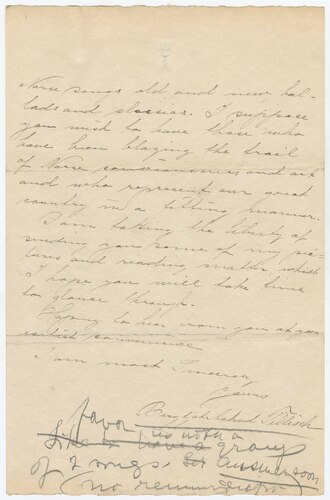 Norse songs old and new bal-
lads and stories. I suppose
you wish to have those who
have been blazing the trail
of Norse consciousness and art
and who represent our great
country in a fitting manner.
I am taking the liberty of
sending you some of my pic-
tures and reading matter which
I hope you will take time
to glance through.
Hoping to hear from you at your
earliest convenience
I am most Sincerely
Yours
favor us with a
like to have a
of 2 mgs for answer soon
no